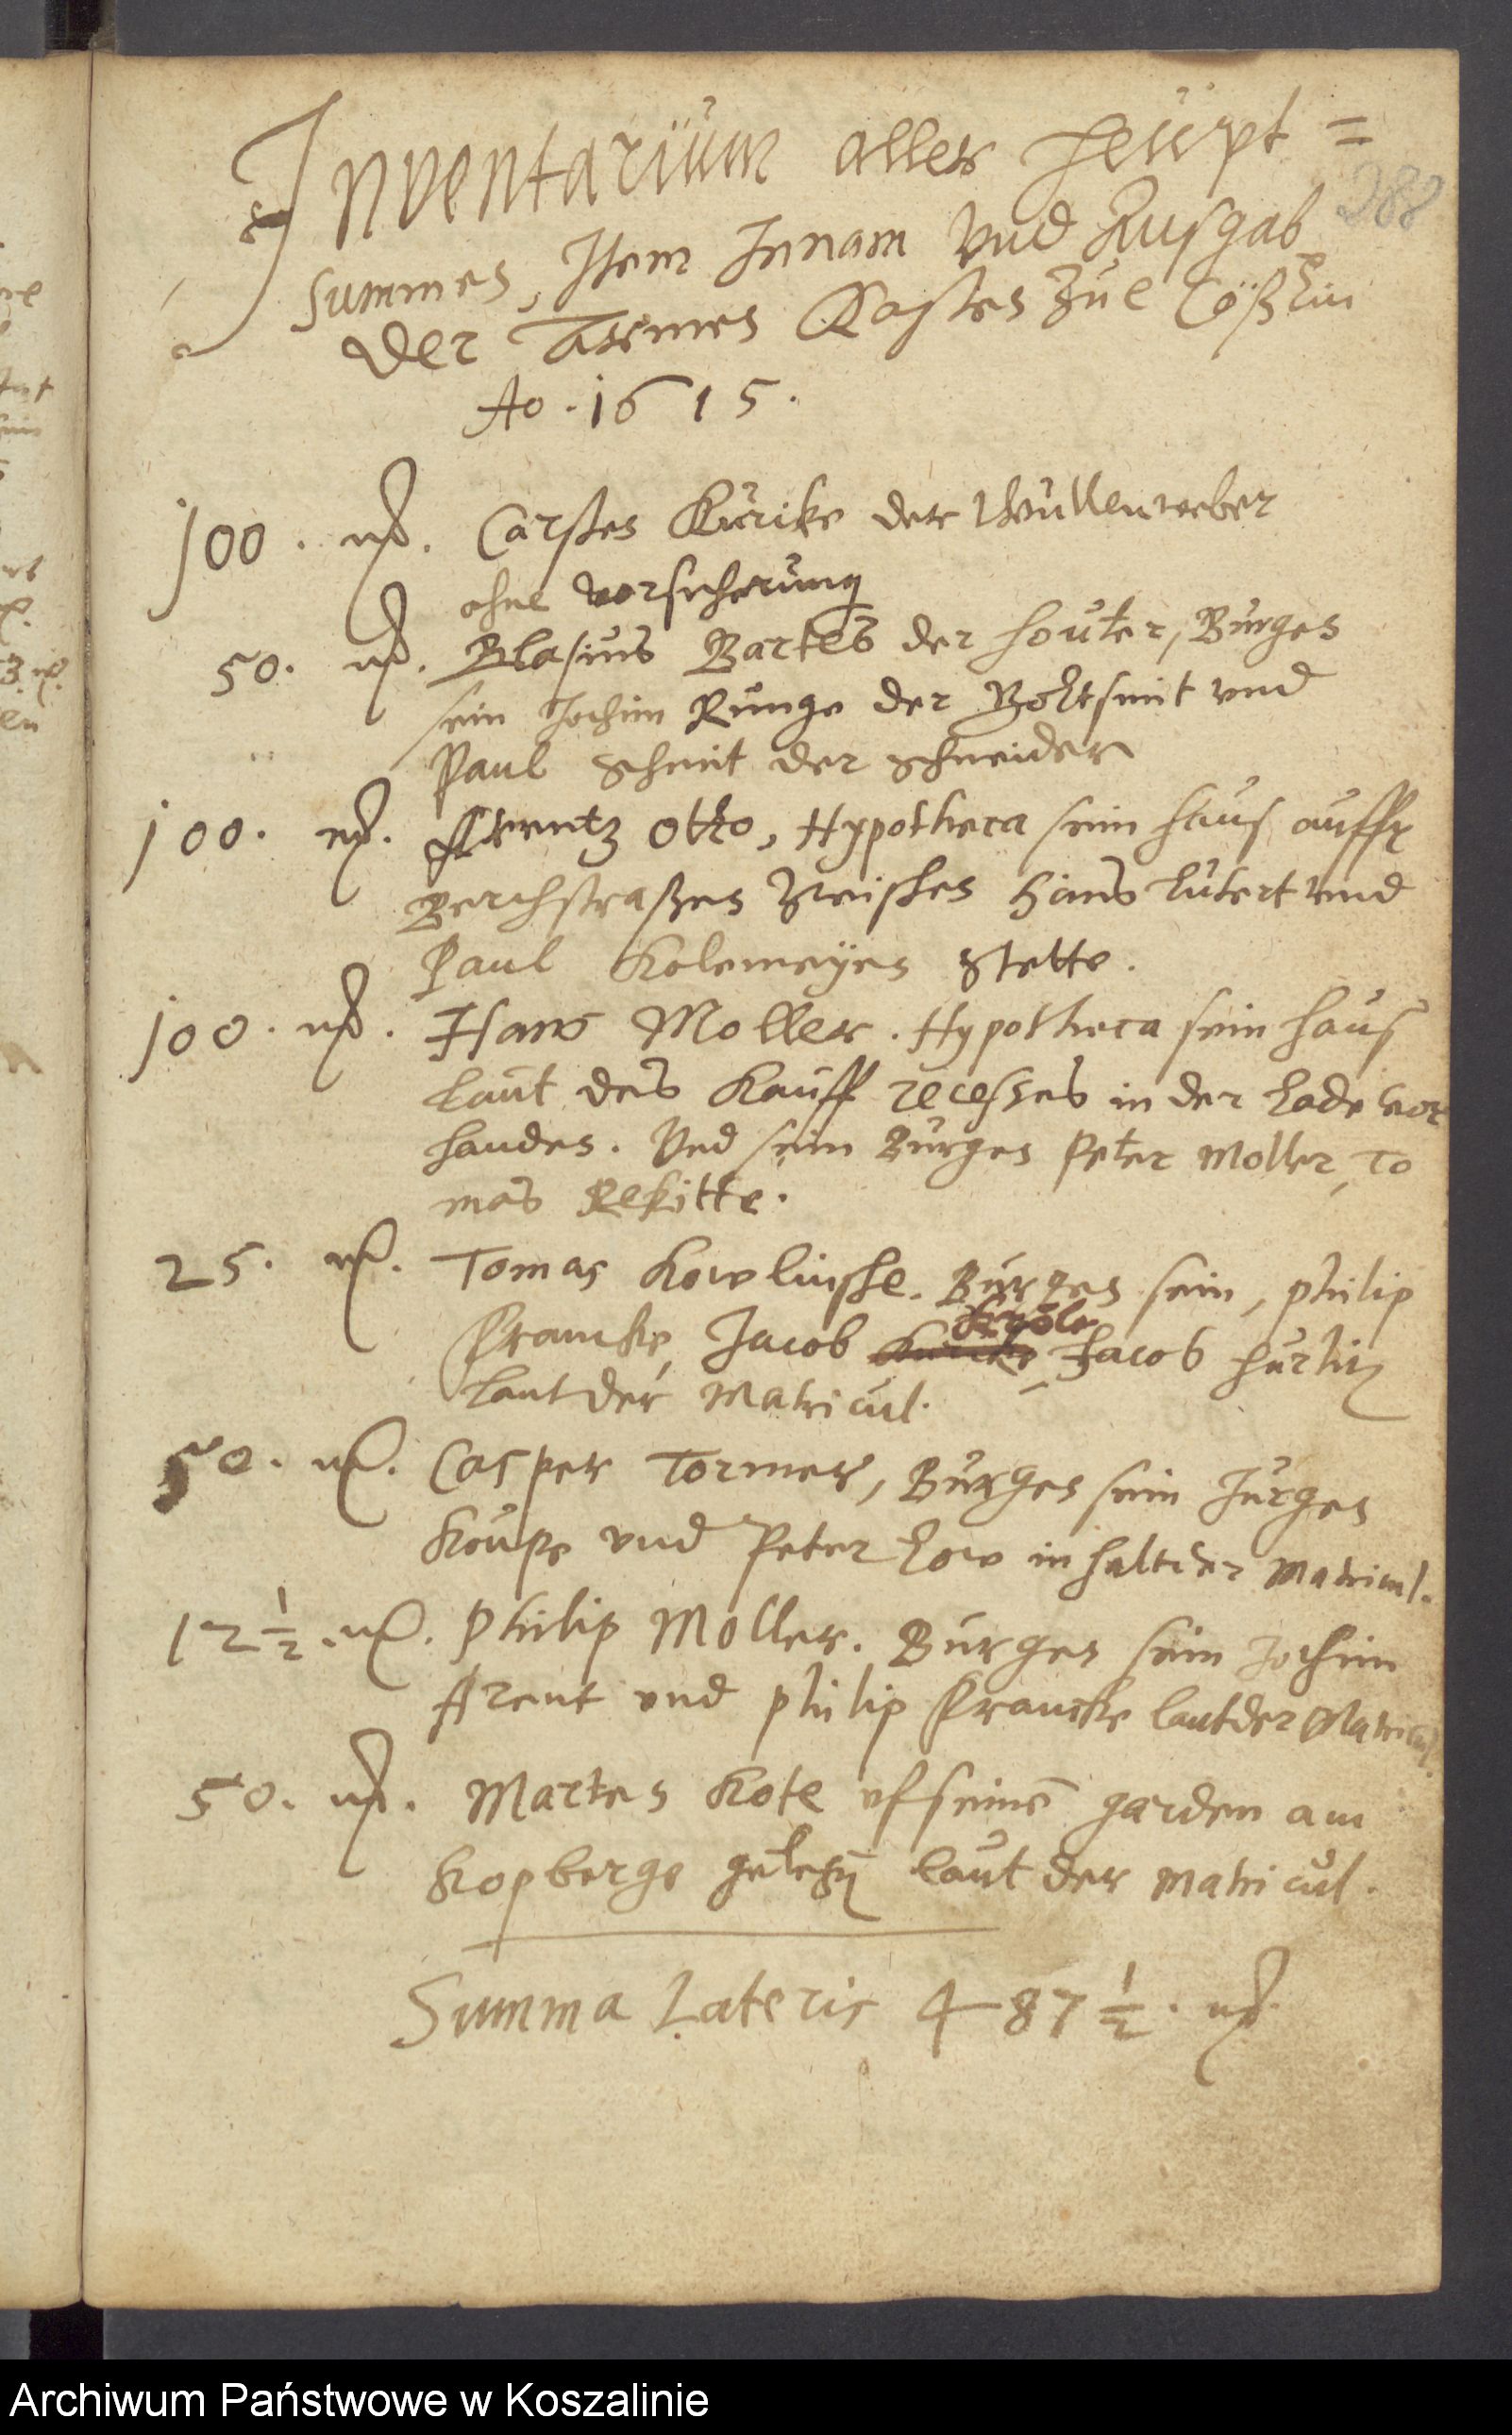 Inventarium aller heupt=
summen, Item Innam Vnd Ausgab
der Armen Kasten Zue Cößlin
Ao. 1615.
288
100. mk. Carsten Kuricke der Wullenweber
ohne Vorsicherung
50. mk. Blasius Bartes der , Burgen
sein Jochim Runge der Boltsmit vnd
Paul Schmit der Schneider
100. mk. Otto, Hypotheca sein haus auffr
Berchstraßen Zwischen Hans Lutert vnd
Paul Kolemeyen Stette.
100. mk. Hans Moller. Hypotheca sein haus
laut des Kauff recesses in der Lade vor
handen. Vnd sein Burgen Peter Moller, To
mas Rekitte.
25. mk. Tomas Kowlinske. Burgen sein, philip
Francke, Jacob Jacob
laut der Matricul.
50. mk. Casper Tormer, Burgen sein Jurgen
Koupe vnd Peter Low inhalt der Matricul.
12 1/2. mk. Philip Moller. Burgen sein Jochim
Arent vnd philip Francke laut der Matricul.
50. mk. Marten Kote vf seinē garden am
Kopberge gelegē laut der Matricul.
Summa Lateris 487 1/2. mk.
Archiwum Państwowe w Koszalinie